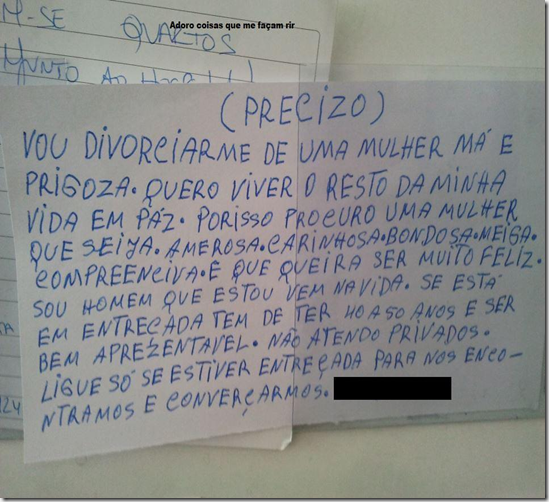 M-SE QUARTOS
Adoro coisas que me façam rir
MUNTO AO
(PRECIZO)
VOU DIVORCIARME DE UMA MULHER MÁ E
PRIGOZA. QUERO VIVER O RESTO DA MINHA
VIDA EM PÁZ. PORISSO PROCURO UMA MULHER
QUE SEIJA. AMEROSA. CARINHOSA. BONDOSA. MEIGA.
COMPREENCIVA. E QUE QUEIRA SER MUITO FELIZ.
SOU HOMEM QUE ESTOU VEM NA VIDA. SE ESTÁ
EM ENTREÇADA TEM DE TER 40 A 50 ANOS E SER
BEM APREZENTAVEL. NÃO ATENDO PRIVADOS.
LIGUE SÓ SE ESTIVER ENTREÇADA PARA NOS ENCO-
NTRAMOS E CONVERÇARMOS.